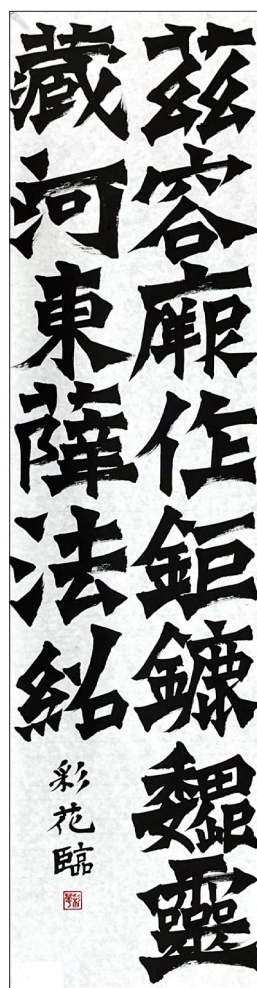 茲容厥作鉅鏕魏靈
藏河東薛法紹
彩花臨